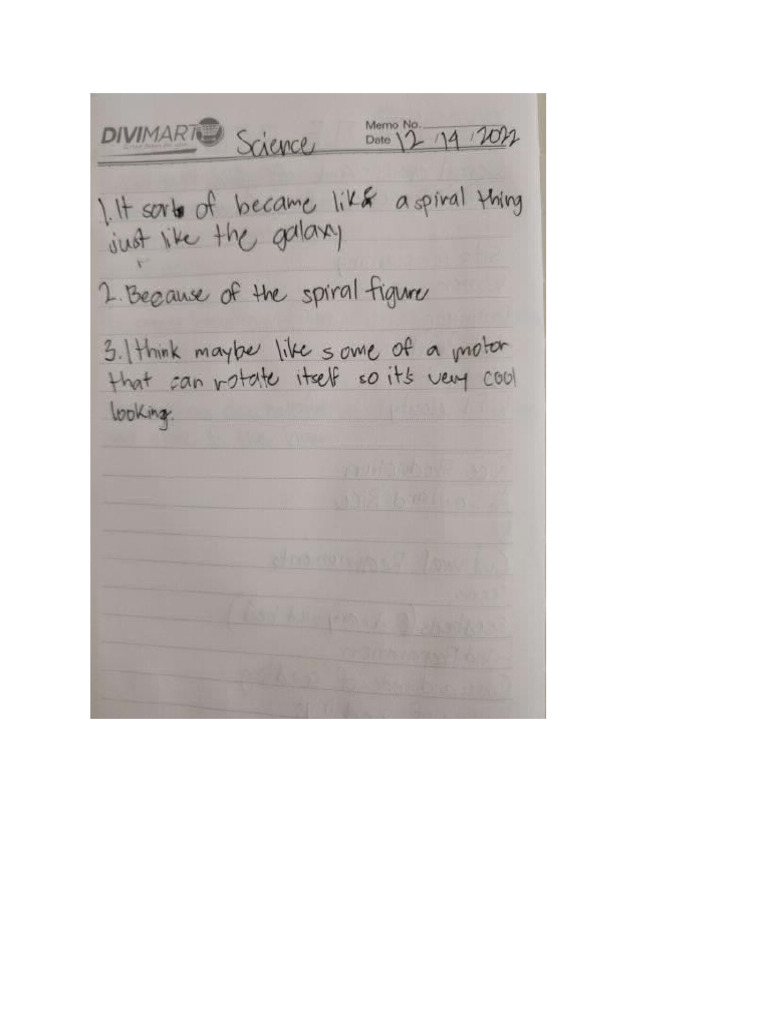 DIVIMART
Science
Memo No.
Date 12 / 14 / 2022
1. It sort of became like a spiral thing
just like the galaxy
2. Because of the spiral figure
3. I think maybe like some of a motor
that can rotate itself so it's very cool
looking.